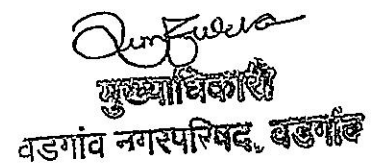 मुख्याधिकारी
वडगांव नगरपरिषद, वडगांव